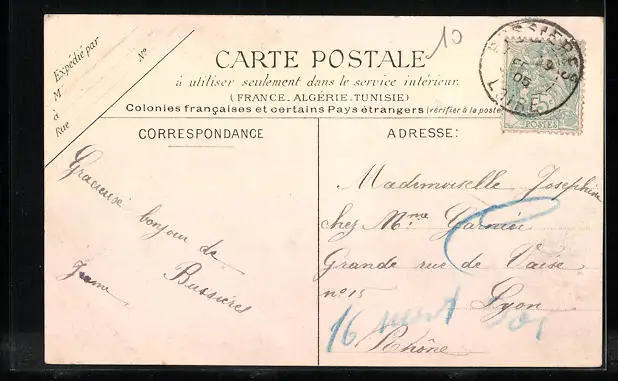 Expédié par
M
à
Rue
N°
10
CARTE POSTALE
à utiliser seulement dans le service intérieur.
(FRANCE_ALGÉRIE_TUNISIE)
Colonies françaises et certains Pays étrangers (vérifier à la poste
BUSSIERES
05
LOIRE
5
POSTES
CORRESPONDANCE
Gracieux bonjour de
Bussières
ADRESSE:
Mademoiselle Josephine
chez Mme Garnier
Grande rue de Vaise
n° 15
Lyon
16
Rhône